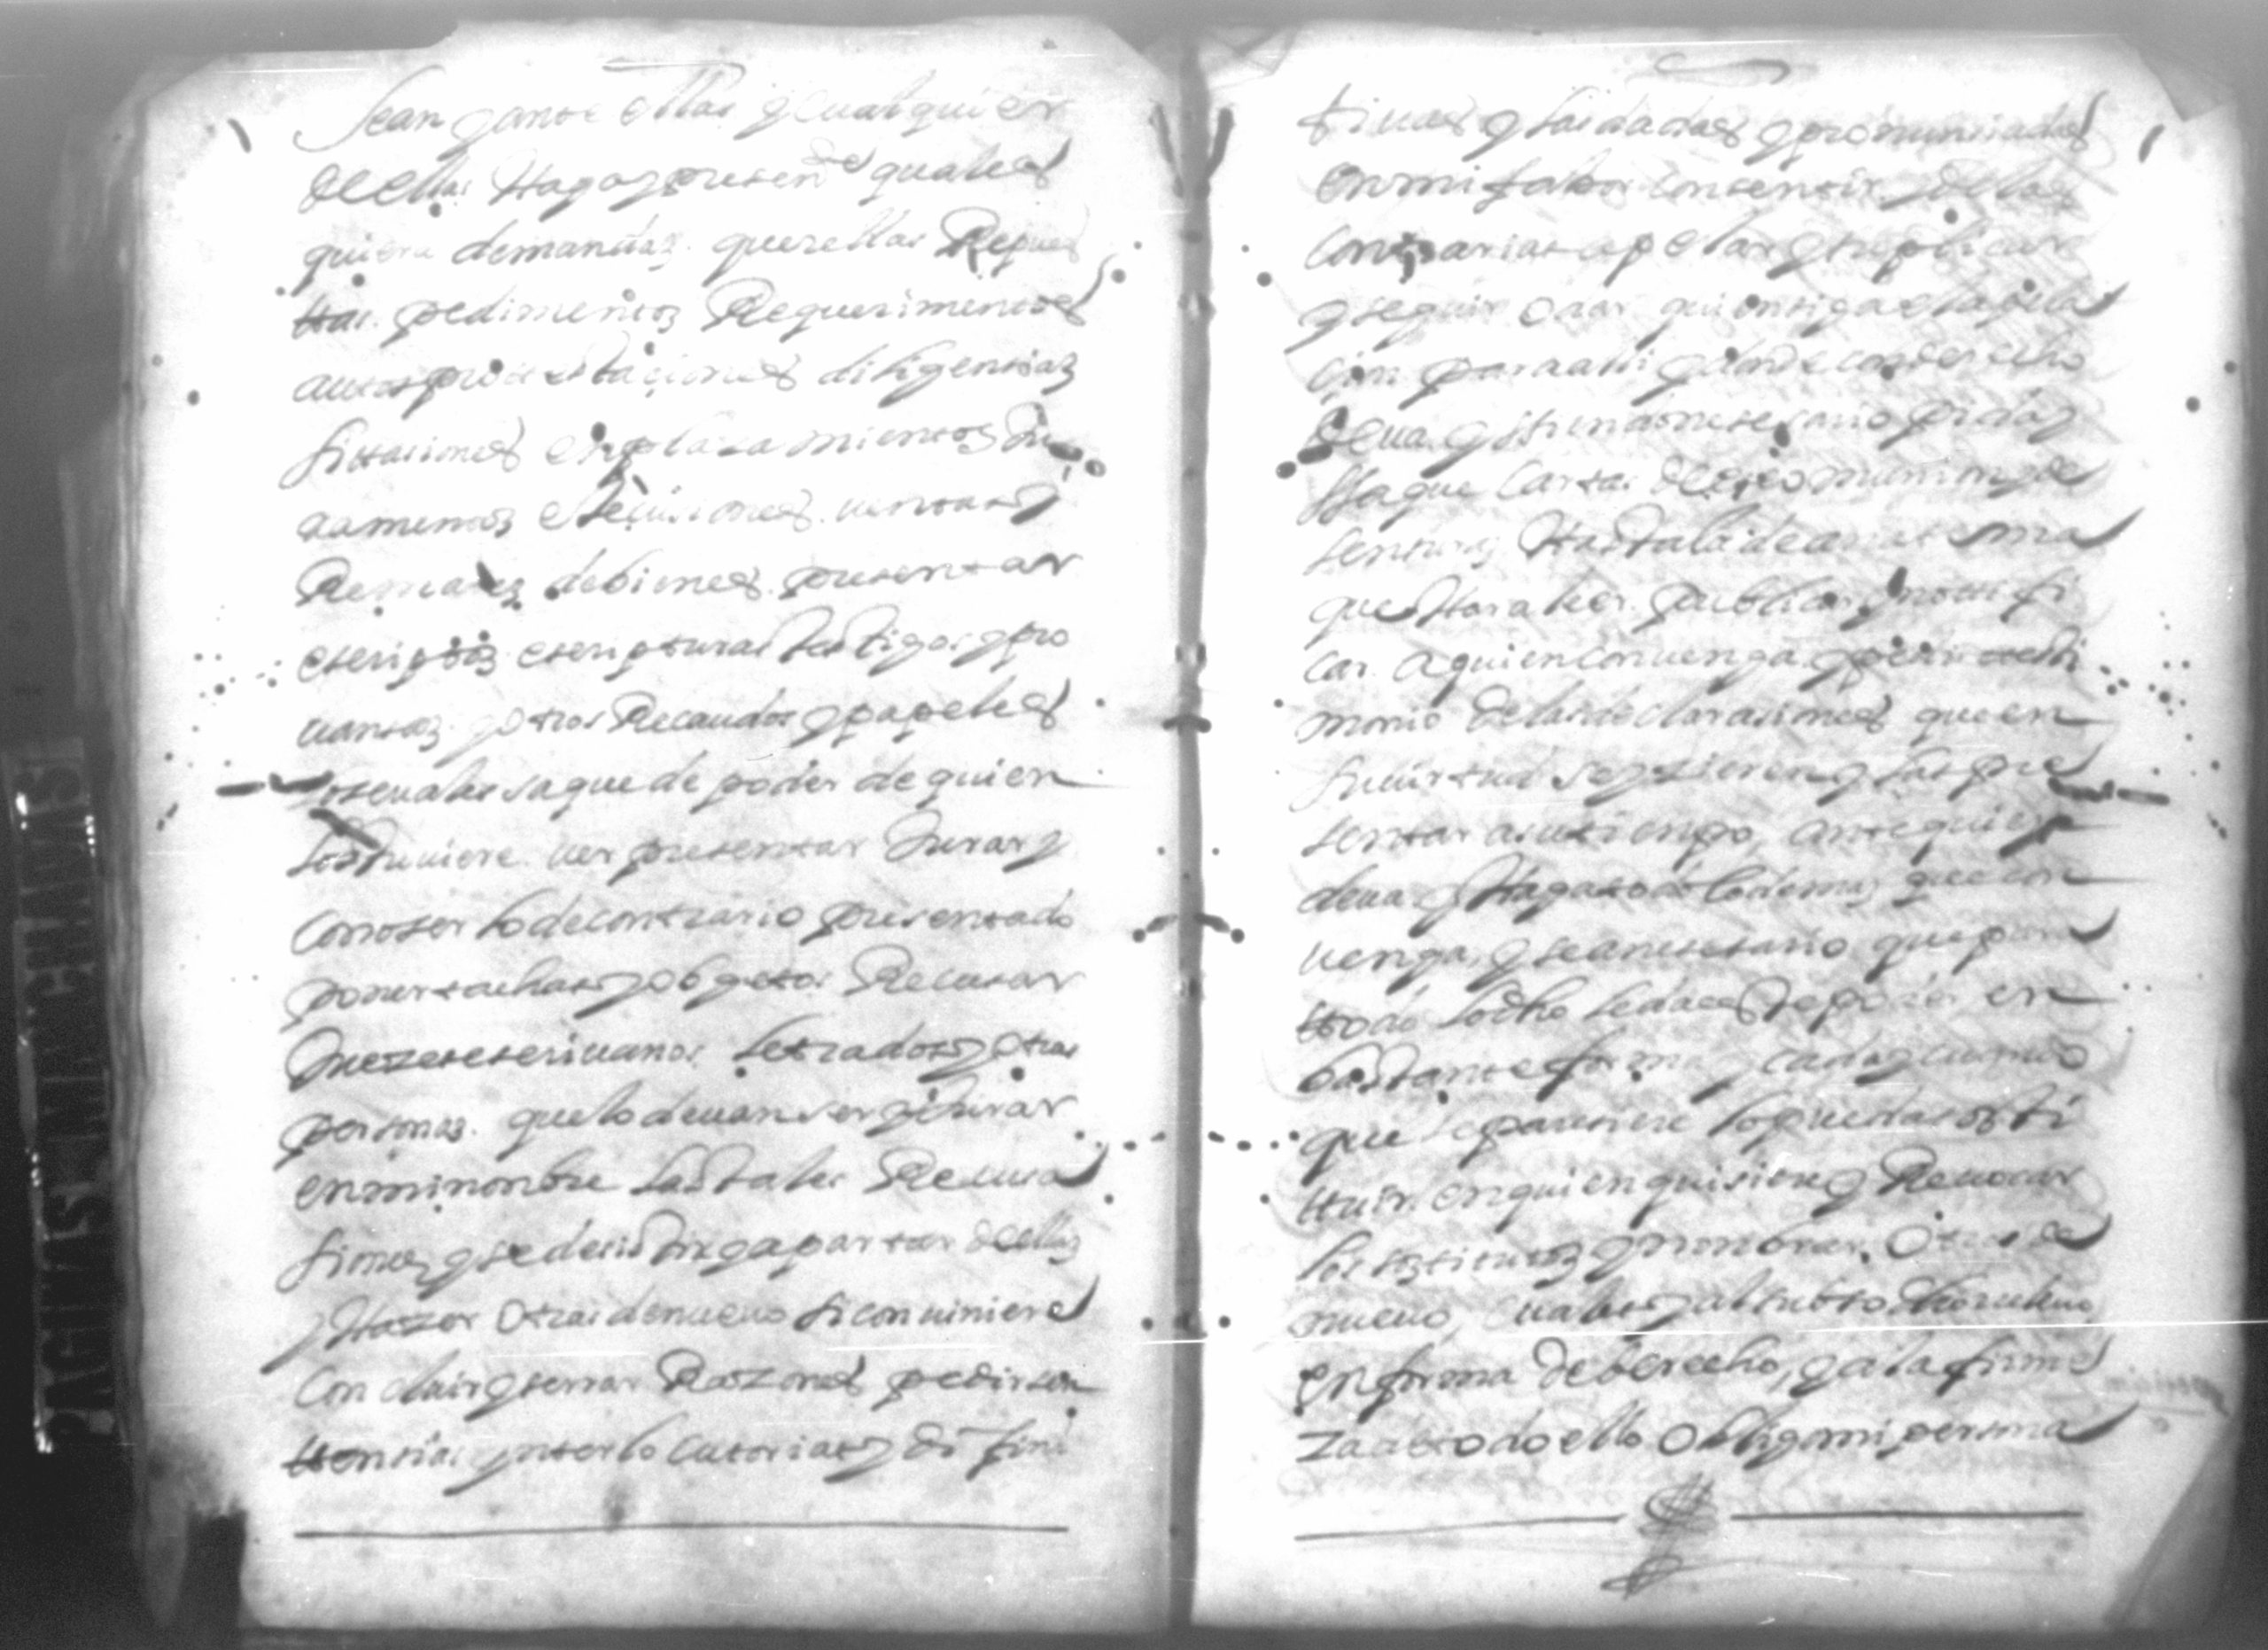 Sean y ante ellas y qualquier
de ellas Haga y presente quales
quiera demandas querellas Repues
ttas pedimentos Requerimentos
autos protestaciones diligensias
sittasiones enplasamientos Ju
ramentos ejecusiones uentas y
Remates de bienes presentar
escriptos escripturas testigos y pro
uansas y otros Recaudos y papeles
los quales saque de poder de quien
los tuuiere uer presentar Jurar y
Conoser lo de contrario presentado
poner tachas y obgetos Recusar
Juezes escriuanos letrados y otras
personas que lo deuan ser y Jurar
en mi nombre las tales Recusa
siones y se desista y apartar de ellas
y Hazer Otras de nueuo si conuiniere
Concluir y serrar Razones pedir sen
ttensias ynterlocutorias y difini
tiuas y las dadas y pronunsiadas
en mi fabor consentir de las
Contrarias apelar y suplicar
y seguir o dar quien siga la apela
cion para alli y donde con derecho
deua y siendo nesesario pida y
Saque Cartas de excomunion y de
sensuras Hasta la de anatema
que Hara leer publicar y notifi
car a quien conuenga y pedir testi
monio de las declarasiones que en
su uirtud se hisieren y las pre
sentar a su tiempo, ante quien
deua y Haga todo lo demas que con
uenga, y sea nesesario que para
ttodo lo dho le da este poder en
bastante forma y
que le paresiere lo pueda sosti
ttuir en quien quisiere y Reuocar
los sostitutos y nonbrar Otros de
nueuo,
en forma de derecho, y a la firme
za de todo ello Obligo mi persona